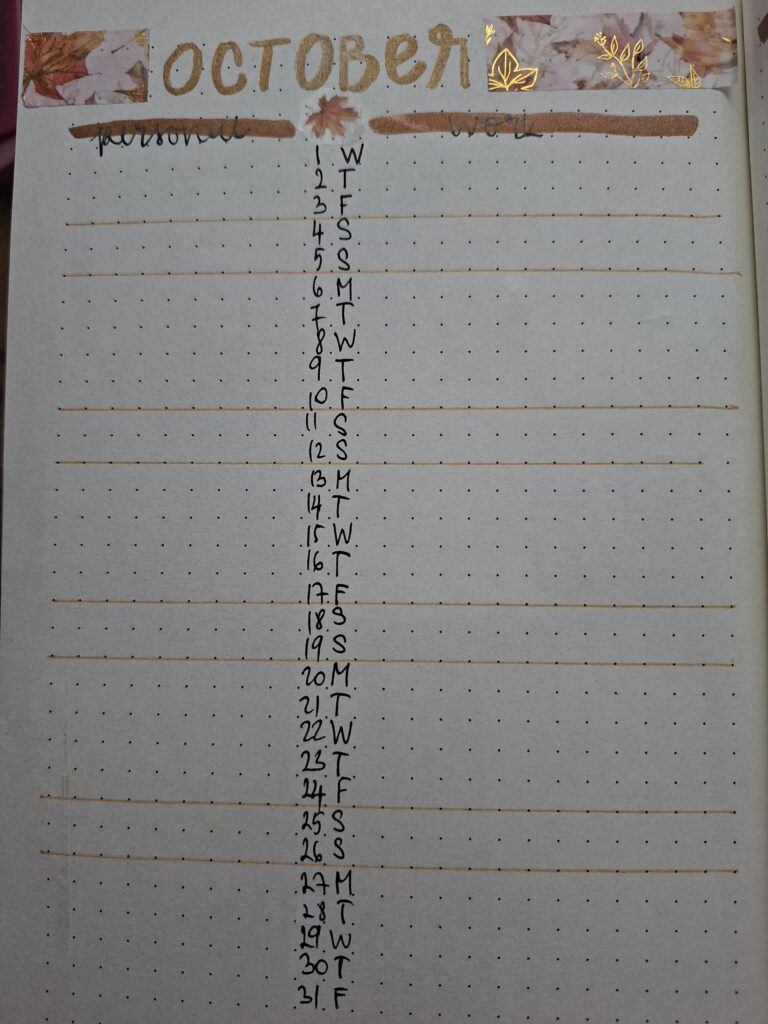 OCTOBER
personal work
1 W
2 T
3 F
4 S
5 S
6 M
7 T
8 W
9 T
10 F
11 S
12 S
13 M
14 T
15 W
16 T
17 F
18 S
19 S
20 M
21 T
22 W
23 T
24 F
25 S
26 S
27 M
28 T
29 W
30 T
31 F